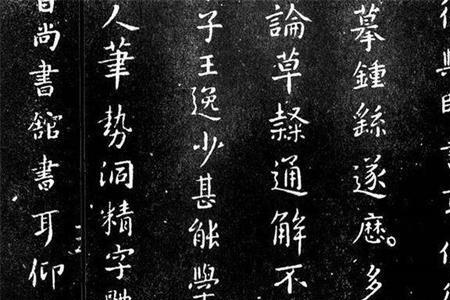 摹鍾繇遂歷多
論草隸通解不
子王逸少甚能學
人筆勢洞精字體
尚書舘書耳仰